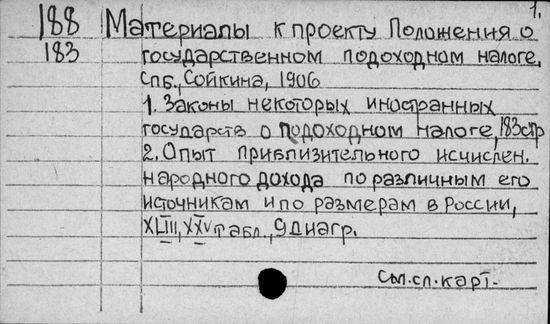 1.
188 Материалы к проекту Положения о
183 государственном подоходном налоге.
Спб., Сойкина, 1906
1. Законы некоторых иностранных
государств о подоходном налоге, 183стр
2. Опыт приблизительного исчислен.
народного дохода по различным его
источникам и по размерам в России,
XLIII, XXV табл., 9 диагр.
См.сл.карт.